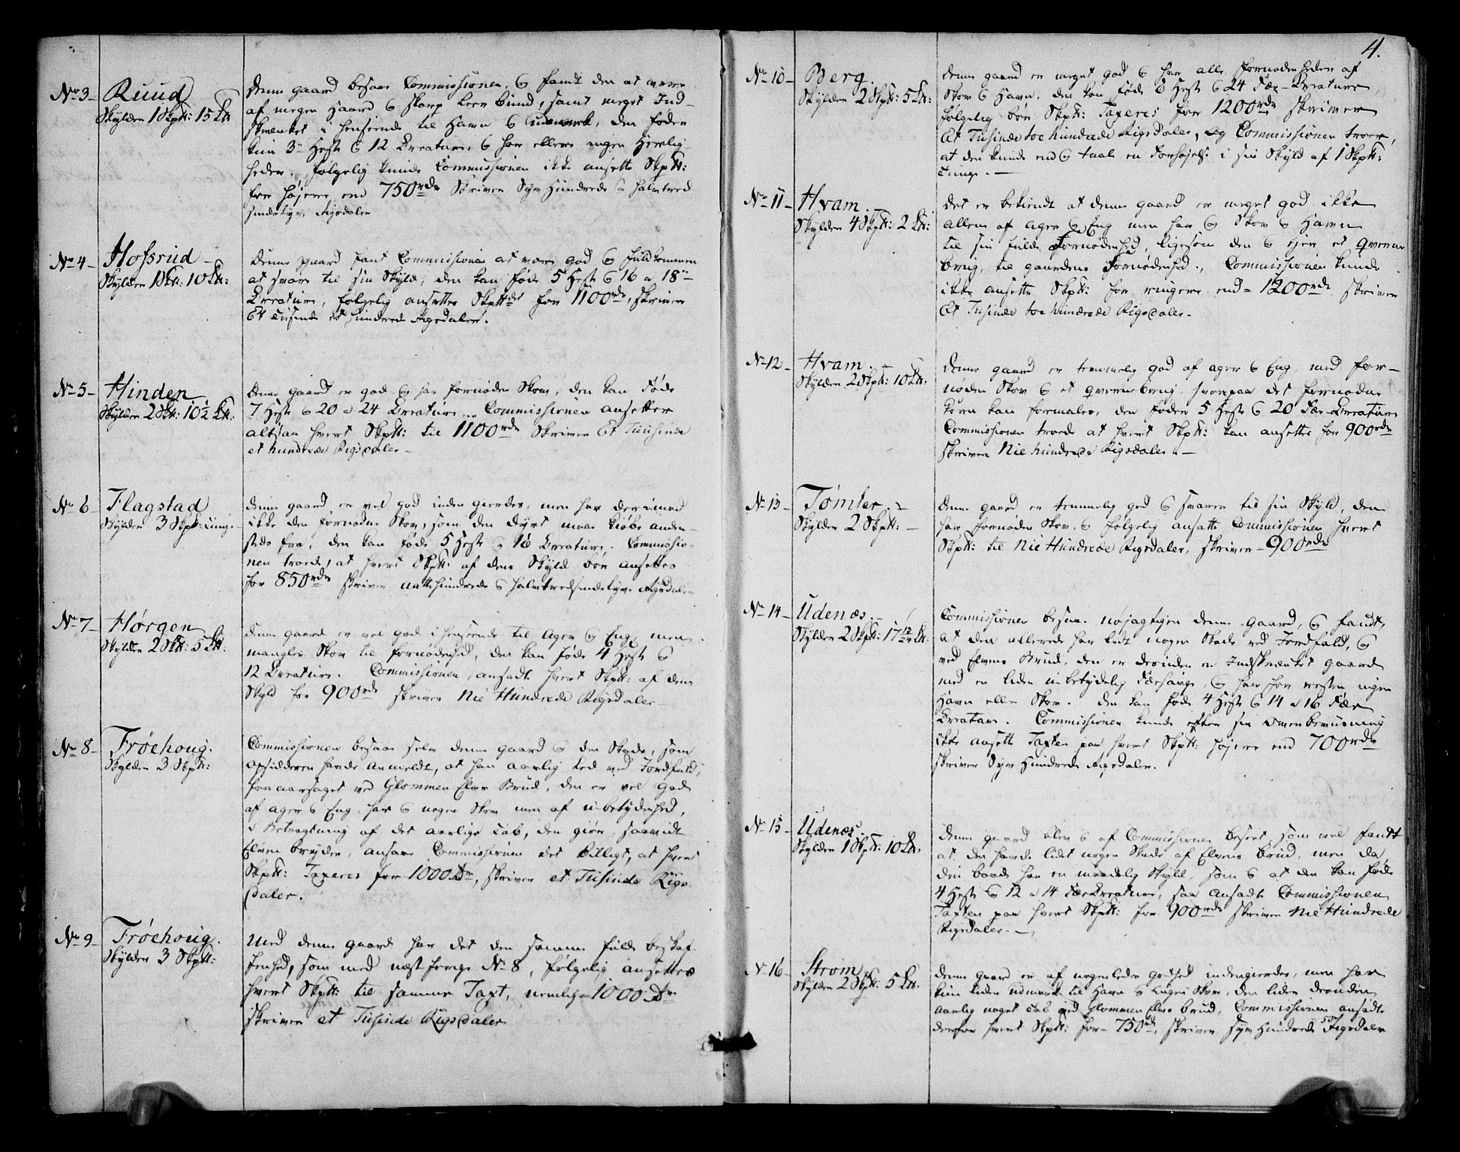 No 3 Ruud
Skylden 1 Skpt: 15 Lt
Denne gaard besaae Commissionen, & fandt den at være
af megen haard & skarp leer bund, samt meget Ind-
skrænket i henseende til Havn &, den føder
kun 3 Hest & 12 Creature, & har ellers ingen Herlig-
heder, følgelig kunde Commissionen ikke ansætte Skpt:
høiere end 750 rdr Skriver Syv Hundrede & halvtred-
sindstyve Rigsdaler
No 4 Hofsrud
Skylden 1 Skt: 10 Lt:
Denne gaard fandt Commissionen at være god & fuldkommen
at svare til sin Skyld, den kan føde 5 Hest & 16 a 18
Creature, følgelig ansættes Skpt for 1100 rdr, skriver
Et tusinde et hundrede Rigsdaler.
No 5 Hinden
Skylden 2 Skt: 10½ Lt.
Denne gaard er god & har fornøden Skov, den kan føde
7 Hest & 20 a 24 Creature. Commissionen ansetter
altsaa hvert Skpt: til 1100 rdr Skriver Et Tusinde
et hundrede Rigsdaler
No 6 Flagstad
Skylden 3 Skpt: tunge
Denne gaard er vel god inden gierdes, men har derimod
ikke den fornødne Skov, som den dyrt maae kiøbe anden-
steds fra, den kan føde 5 Hest & 16 Creature. Commissio-
nen troede, at hvert Skpt: af dens Skyld bør ansettes
for 850 rdr skriver aattehundrede & halvtredsindstyve Rigsdaler
No 7 Hørgen
Skylden 2 Skt: 5 Lt:
Denne gaard er vel god i henseende til Ager & Eng, men
mangler Skov til fornødenhed, den kan føde 4 Hest &
12 Creature. Commissionen ansadt hvert Skpt: af dens
Skyld for 900 rdr skriver Nie Hundrede Rigsdaler
No 8 Frøehoug.
Skylden 3 Skpt:
Commissionen besaae selv denne gaard & den Skade, som
opsidderen havde anmeldt, at han aarlig led ved Jordfald,
foraarsaget ved Glommen Elvs Brud, den er vel god
af ager & Eng, har & nogen Skov men af ubetydenhed,
i Betragtning af det aarlige tab, den giør, saavidt
Elven bryder, ansaae Commissionen det billigt, at hvert
Skpt: Taxeres for 1000 rdr, skriver et Tusinde Rigs-
daler.
No 9 Frøehoug.
Skylden 3 Skpt:
Med denne gaard har det den samme fulde beskaf-
fenhed, som med næst forrige No 8, følgelig ansættes
hvert Skpt: til samme Taxt, nemlig 1000 rdr
skriver et Tusinde Rigsdaler
4.
No 10 Berg.
Skylden 2 Skpt: 5 Lt:
Denne gaard er meget god & har alle fornødenheder af
Skov & Havn, den kan føde 6 Hest & 24 Fæ-Creature
følgelig bør Skpt: Taxeres for 1200 rdr skriver
Et Tusinde toe hundrede Rigsdaler, og Commissionen troer,
at den kunde end & taale en Forhøielse i sin Skyld af 1 Skpt:
Tunge.
No 11 Hvam.
Skylden 4 Skpt: 2 Lt:
Det er bekiendt at denne gaard er meget god ikke
allene af ager & Eng men har & Skov & Havn
til sin fulde Fornødenhed, ligesom den & eyer et Qverne
brug, til gaardens Fornødenhed, Commissionen kunde
ikke ansette Skpt: for ringere end 1200 rdr skriver
Et Tusinde toe Hundrede Rigsdaler.
No 12 Hvam.
Skylden 2 Skpt: 10 Lt:
Denne gaard er temmelig god af ager & Eng med for-
nøden Skov & et qvernebrug hvorpaa det fornødne
korn kan formales, den føder 5 Hest & 20 Fæe-Creature
Commissionen troede at hvert Skpt: kan ansettes for 900 rdr
skriver Nie hundrede Rigsdaler.
No 13 Tømter
Skylden 2 Skpt:
Denne gaard er temmelig god & svarer til sin Skyld, den
har fornøden Skov, & følgelig ansatte Commissionen hvert
Skpt: til Nie Hundrede Rigsdaler, skriver 900 rdr
No 14 Udenæs
Skylden 2 Skpt: 17 Lt:
Commissionen besaae nøjagtigen denne gaard, & fandt,
at den allerede har lidt nogen Skade ved Jordfald, &
ved Elvens Brud, den er desuden en Indskrænket gaard
med en liden ubetydelig Fæehavn, & har for resten ingen
Havn eller Skov. Den kan føde 4 Hest & 14 a 16 Fæe
Creature. Commissionen kunde efter sin
ikke ansette Taxten paa hvert Skpt: høiere end 700 rdr
skriver Syv Hundrede Rigsdaler.
No 15 Udenæs.
Skylden 1 Skpt: 10 Lt.
Denne gaard blev & af Commissionen beseet, som vel fandt
at den havde lidt nogen Skade af Elvens Brud, men da
den baade har en maadelig Skyld, som & at den kan føde
4 Hest & 12 a 14 Fæe Creature, saa ansadt Commissionen
Taxten paa hvert Skpt: for 900 rdr skriver Nie Hundrede
Rigsdaler.
No 16 Strøm
Skylden 2 Skpt: 5 Lt.
Denne gaard er af nogenledes godhed indengierdes, men har
kun liden udmark til Havn & ingen Skov, den lider desuden
aarlig noget tab ved Glommens Elvs brud, Commissionen ansadte
derfor hvert Skpt: for 750 rdr, skriver syv Hundrede Rigsdaler